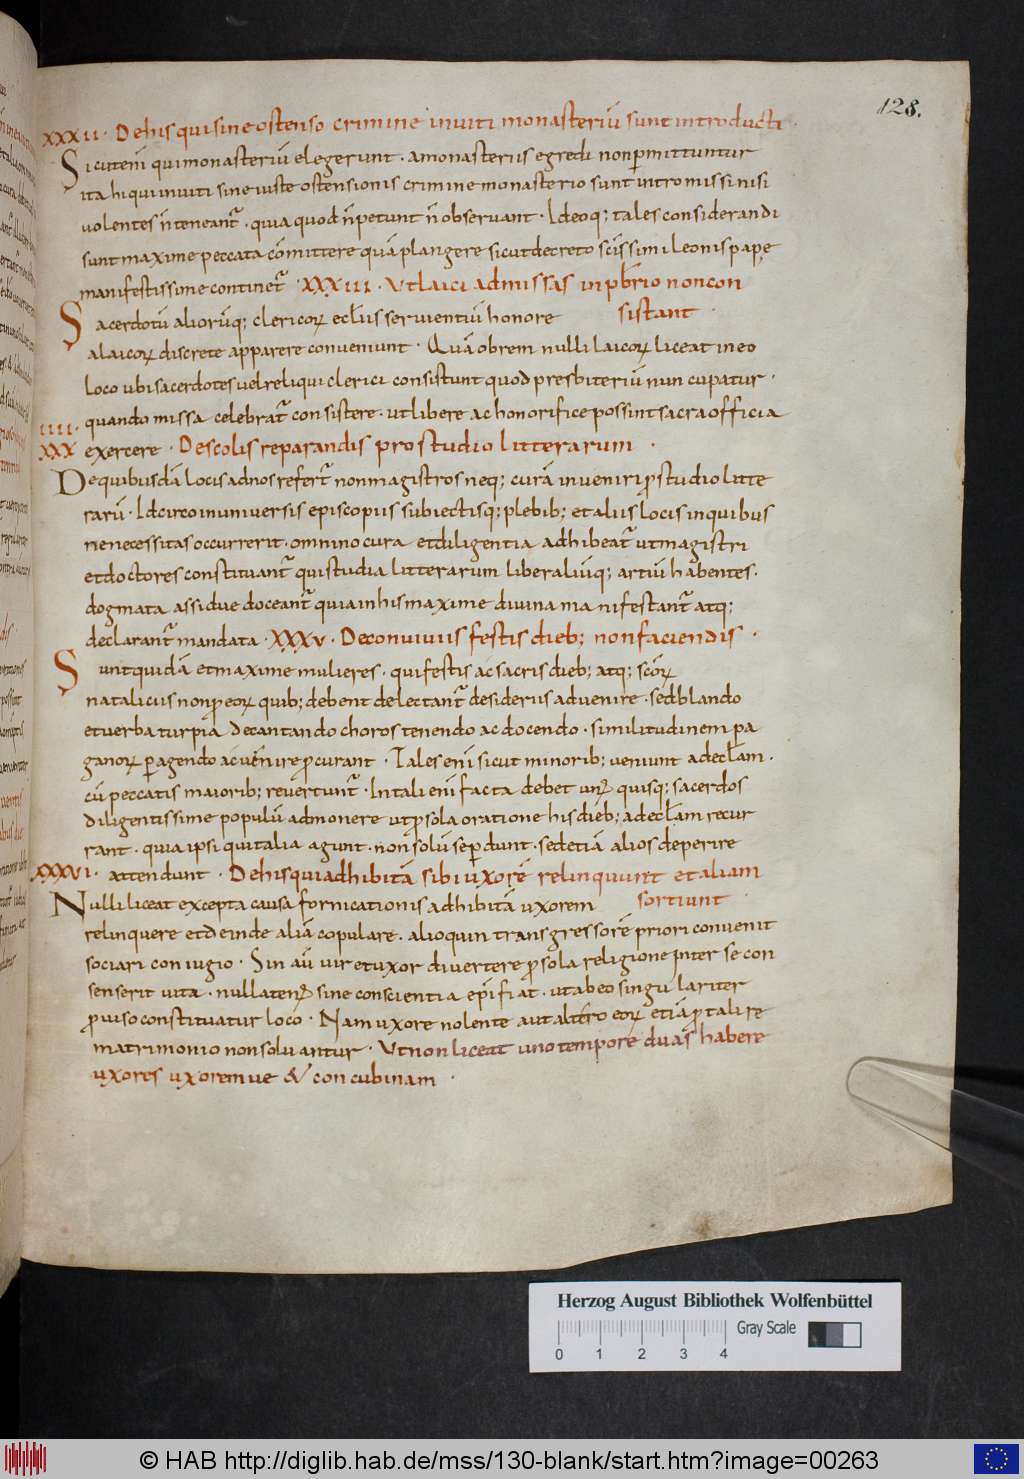 128.
XXXII. De his qui sine ostenso crimine inviti monasteriū sunt introducti.
Sicut enī qui monasteriū elegerunt. a monasteriis egredi non ꝑmittuntur
ita hi qui inviti sine iuste ostensionis crimine monasterio sunt intromissi nisi
volentes n̄ teneant̄. quia quod n̄ petunt n̄ observant. Ideoq; tales considerandi
sunt maxime peccata cōmittere quā plangere sicut decreto sc̄issimi leonis papę
manifestissime continet̄. XXXIII. Ut laici ad missas in pb̄rio non con
sistant.
Sacerdotū aliorūq; clericoꝝ eccl̄iis servientiū honore
a laicoꝝ discrete apparere conveniunt. Quā obrem nulli laicoꝝ liceat in eo
loco ubi sacerdotes vel reliqui clerici consistunt quod presbiteriū nuncupatur.
quando missa celebrat̄ consistere. ut libere ac honorifice possint sacra officia
IIII.
XXX exercere. De scolis reparandis pro studio litterarum.
De quibusdā locis ad nos refert̄ non magistros neq; curā inveniri ꝓ studio litte
rarū. Idcirco in universis episcopiis subiectisq; plebib; et aliis locis in quibus
ne necessitas occurrerit. omnino cura et diligentia adhibeat̄ ut magistri
et doctores constituant̄ qui studia litterarum liberaliūq; artiū habentes.
dogmata assidue doceant̄ quia in his maxime divina manifestant̄ atq;
declarant̄ mandata. XXXV. De conviviis festis dieb; non faciendis.
Sunt quidā et maxime mulieres. qui festis ac sacris dieb; atq; sc̄oꝝ
nataliciis non ꝓ eoꝝ quib; debent delectant̄ desideriis advenire. sed blando
et verba turpia decantando choros tenendo ac docendo. similitudinem pa
ganoꝝ ꝑagendo ac venire ꝓcurant. Tales enī si cū minorib; veniunt ad eccl̄am.
cū peccatis maiorib; revertunt̄. In tali enī facta debet unꝰ quisq; sacerdos
diligentissime populū admonere ut ꝓ sola oratione his dieb; ad eccl̄am recur
rant. quia ipsi qui talia agunt. non solū se ꝑdunt. sed etiā alios deperire
XXXVI. attendunt. De his qui adhibitā sibi uxorē relinquunt et aliam
sortiunt.
Nulli liceat excepta causa fornicationis adhibitā uxorem
relinquere et deinde aliā copulare. alioquin transgressorē priori convenit
sociari coniugio. Sin aū vir et uxor divertere ꝓ sola religione inter se con
senserit vita. nullatenꝰ sine conscientia epī fiat. ut ab eo singulariter
ꝓviso constituatur loco. Nam uxore nolente aut altero eoꝝ etiā ꝓ tali re
matrimonio non solvantur. Ut non liceat uno tempore duas habere
uxores uxoremve & concubinam.
Herzog August Bibliothek Wolfenbüttel
Gray Scale
0 1 2 3 4
© HAB http://diglib.hab.de/mss/130-blank/start.htm?image=00263